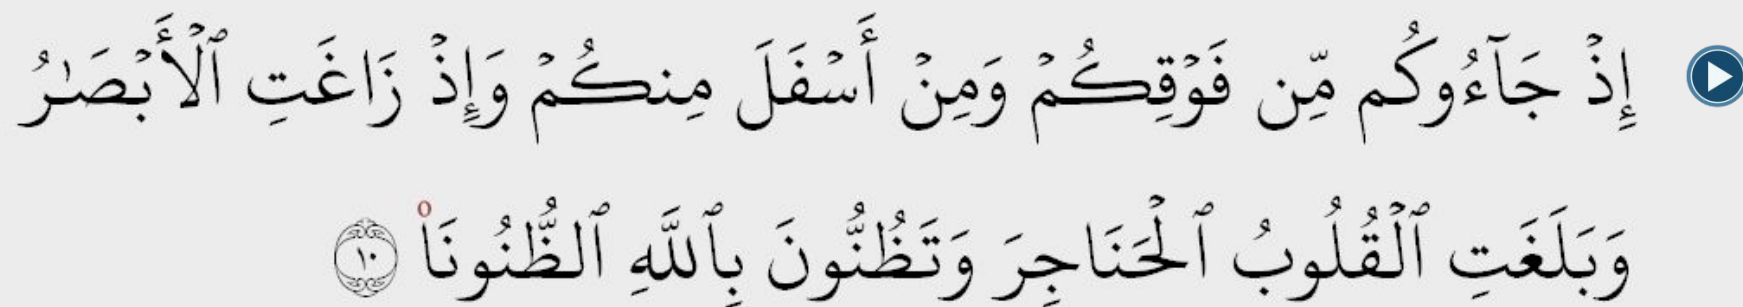 إِذْ جَآءُوكُم مِّن فَوْقِكُمْ وَمِنْ أَسْفَلَ مِنكُمْ وَإِذْ زَاغَتِ ٱلْأَبْصَـٰرُ
وَبَلَغَتِ ٱلْقُلُوبُ ٱلْحَنَاجِرَ وَتَظُنُّونَ بِٱللَّهِ ٱلظُّنُونَا۠ ١٠